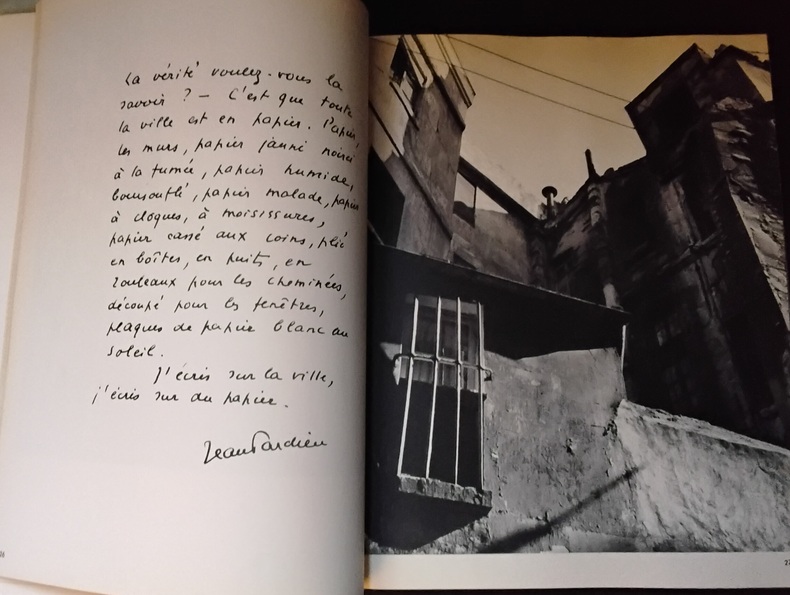 La vérité voulez-vous la
savoir ? – C'est que toute
la ville est en papier. Papier,
les murs, papier jauni noirci
à la fumée, papier humide,
boursouflé, papier malade, papier
à cloques, à moisissures,
papier cassé aux coins, plié
en boîtes, en puits, en
rouleaux pour les cheminées,
découpé pour les fenêtres,
plaques de papier blanc au
soleil.
J'écris sur la ville,
j'écris sur du papier.
Jean Tardieu